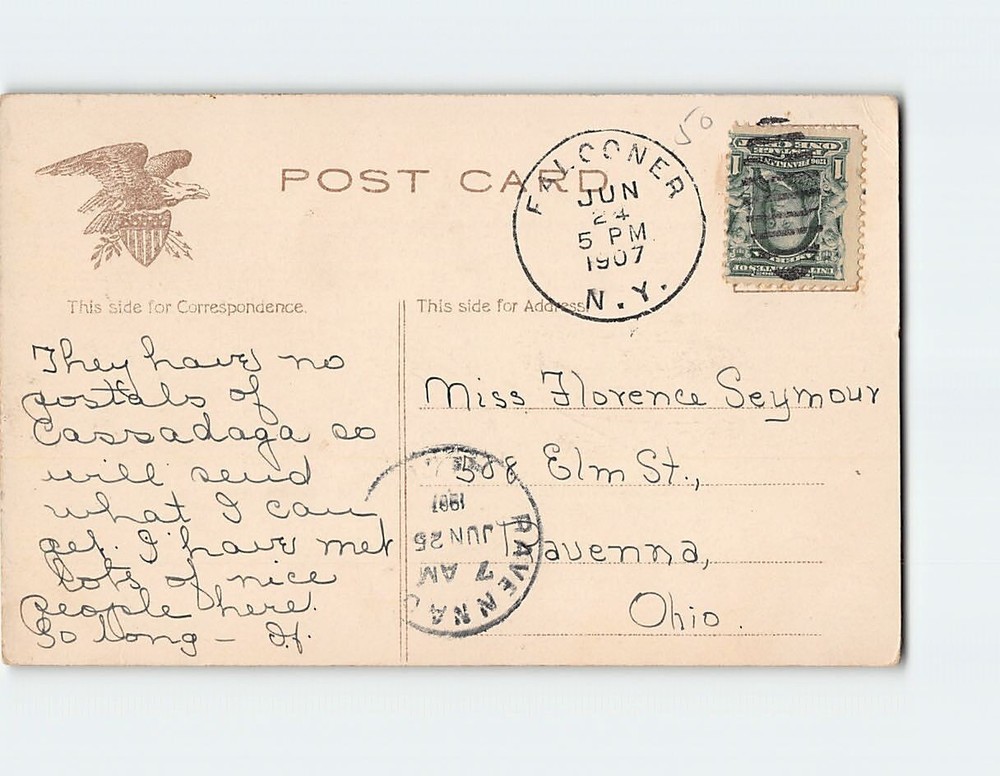 50
POST CARD
FALCONER
JUN
24
5 PM
1907
N.Y.
ONE
1 1
This side for Correspondence.
This side for Address
They have no
postals of
Cassadaga so
will send
what I can
get. I have met
lots of nice
people here.
So long –
Miss Florence Seymour
508 Elm St.,
Ravenna,
Ohio.
RAVENNA
7 AM
JUN 25
1907